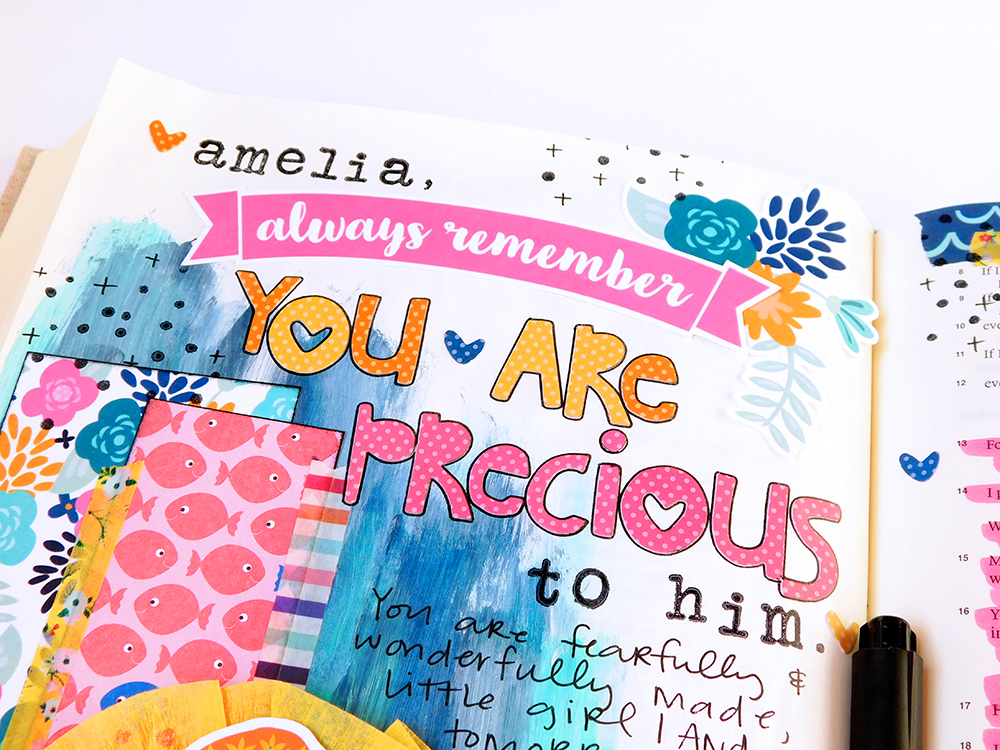 amelia,
always remember
YOU ARE
PRECIOUS
to him.
You are fearfully &
wonderfully made,
little girl! And
8 If I
9
10 eve
11 If I
12 eve
13 Fo
14 I
15 M
16 Y
17 H
18